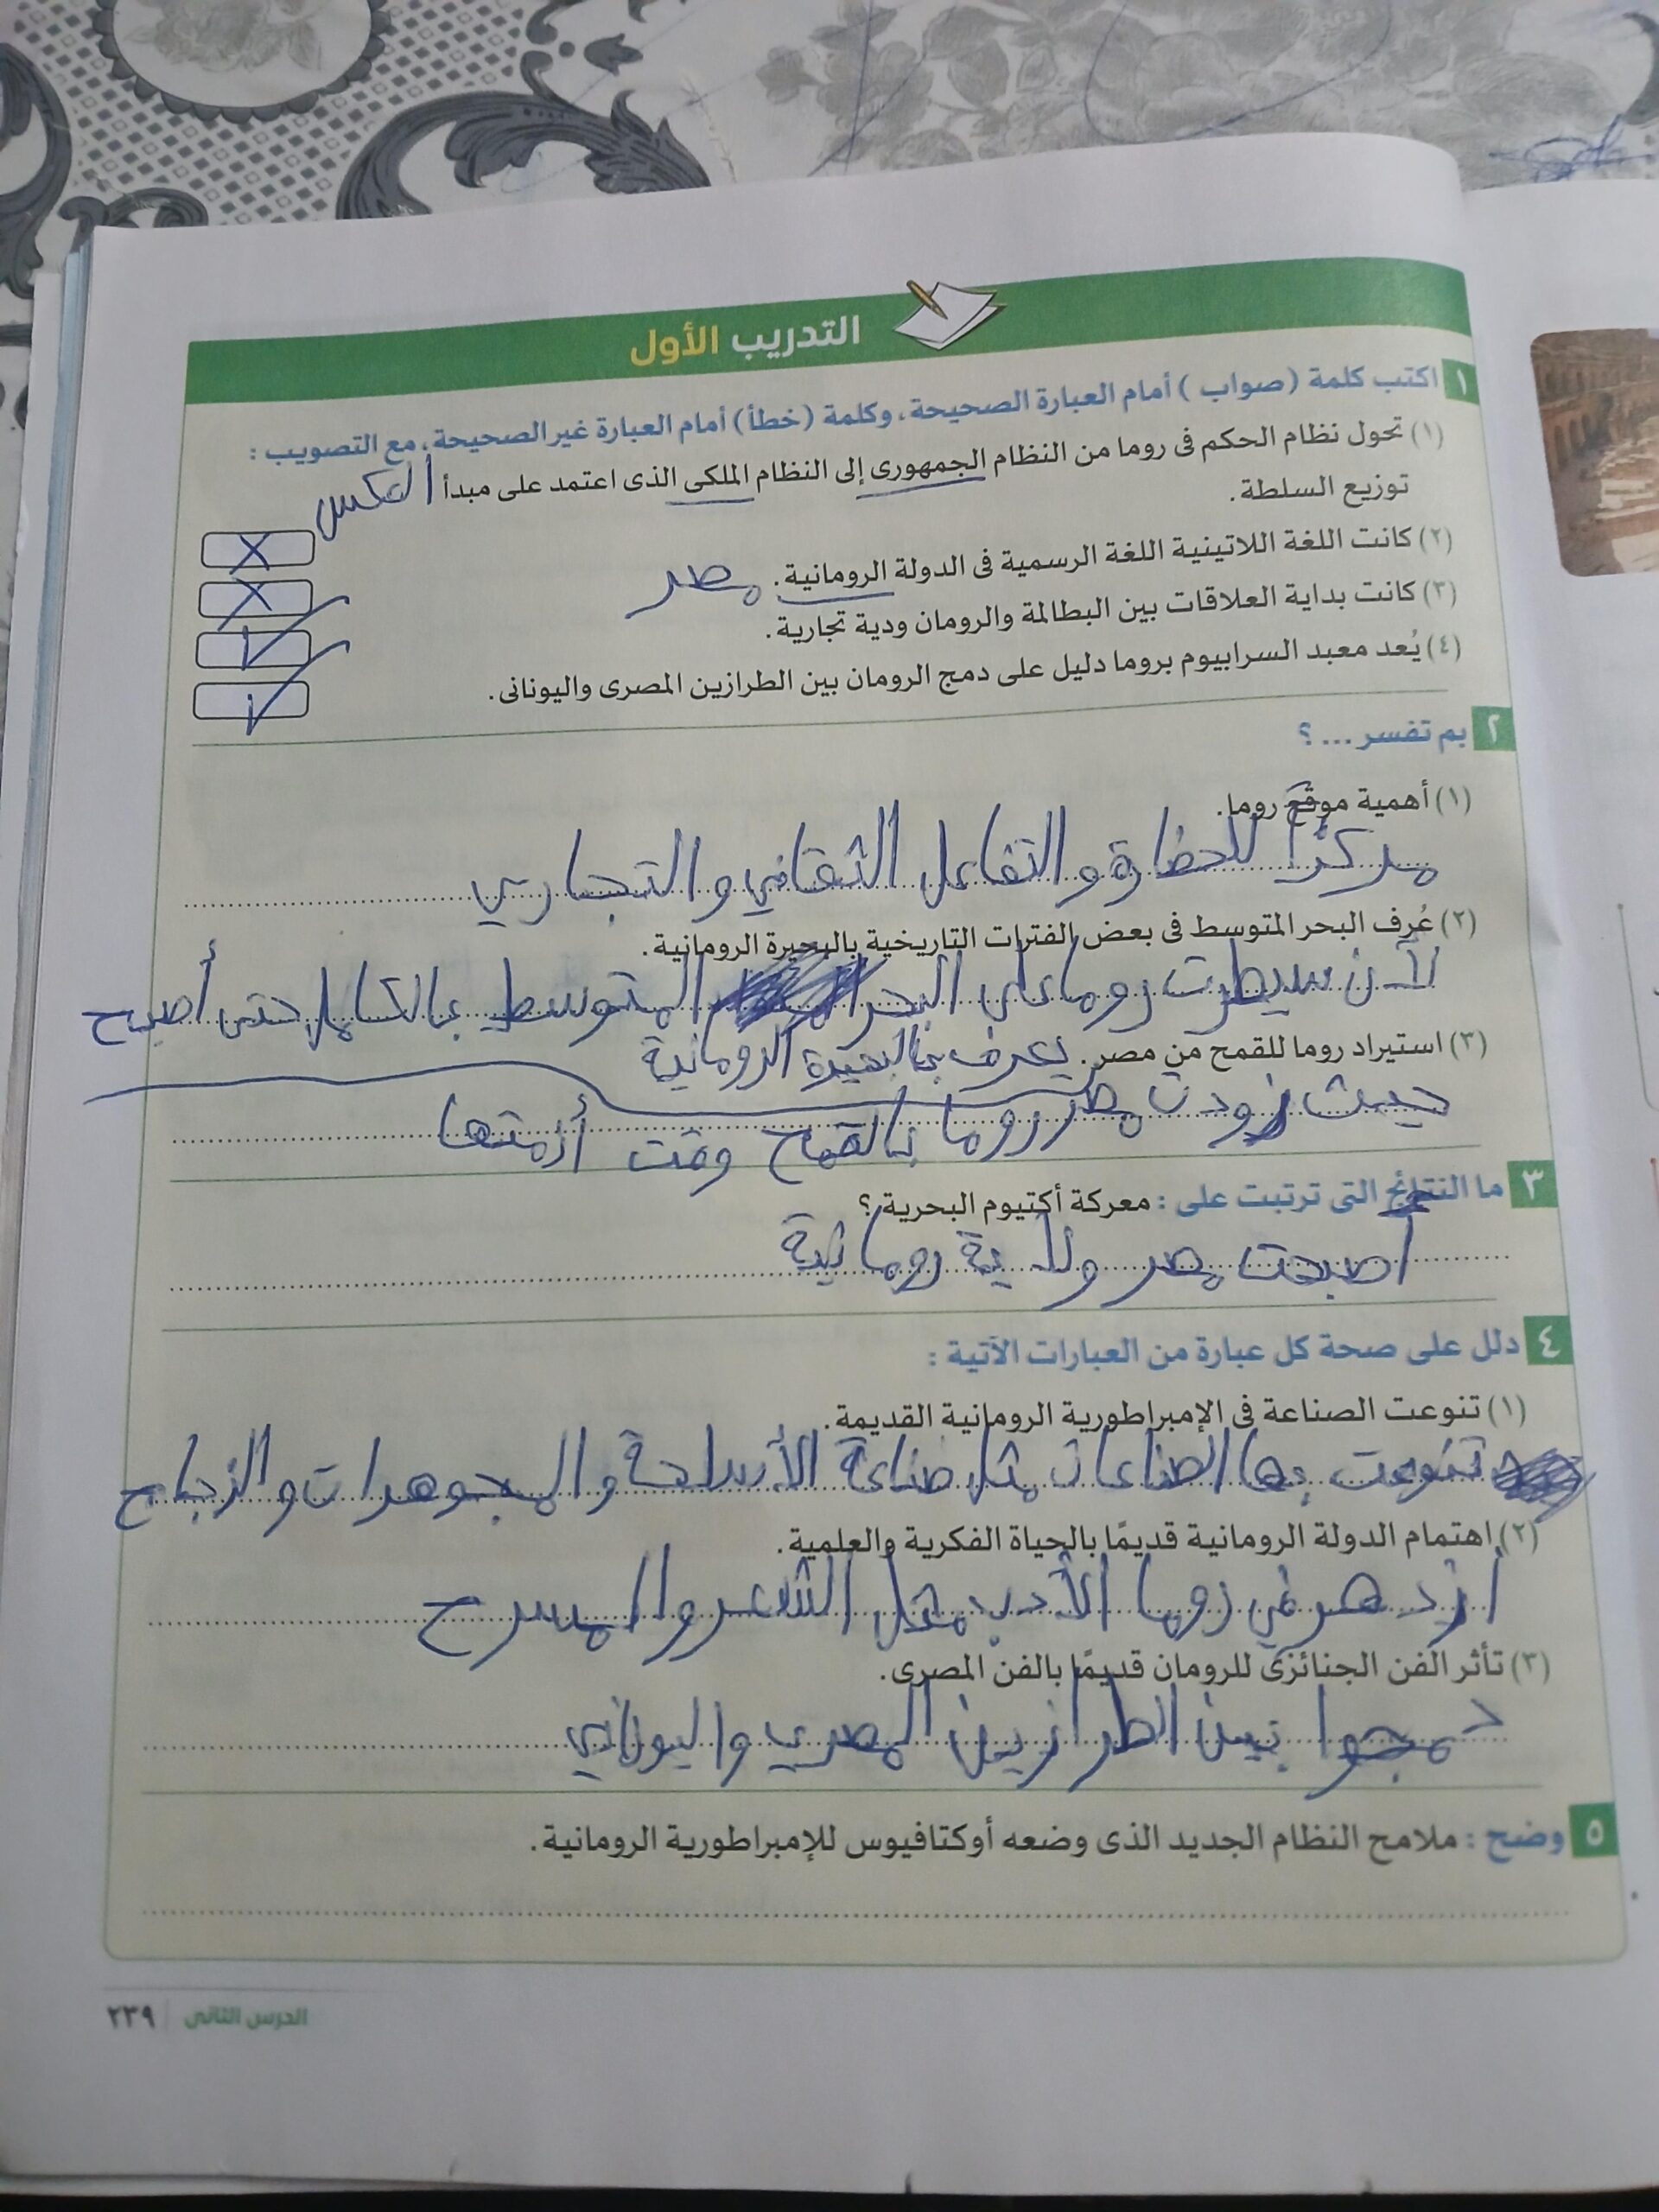 التدريب الأول
١ اكتب كلمة (صواب) أمام العبارة الصحيحة، وكلمة (خطأ) أمام العبارة غير الصحيحة، مع التصويب :
(١) تحول نظام الحكم فى روما من النظام الجمهورى إلى النظام الملكى الذى اعتمد على مبدأ العكس
توزيع السلطة.
X
(٢) كانت اللغة اللاتينية اللغة الرسمية فى الدولة الرومانية. مصر
X
(٣) كانت بداية العلاقات بين البطالمة والرومان ودية تجارية.
✓
(٤) يُعد معبد السرابيوم بروما دليل على دمج الرومان بين الطرازين المصرى واليونانى.
✓
٢ بم تفسر ... ؟
(١) أهمية موقع روما.
مركزًا للحضارة والتفاعل الثقافي والتجاري
(٢) عُرف البحر المتوسط فى بعض الفترات التاريخية بالبحيرة الرومانية.
لأن سيطرت روما على البحر المتوسط بالكامل حتى أصبح
(٣) استيراد روما للقمح من مصر. يعرف بالبحيرة الرومانية
حيث زودت مصر روما بالقمح وقت أزمتها
٣ ما النتائج التى ترتبت على : معركة أكتيوم البحرية ؟
أصبحت مصر ولاية رومانية
٤ دلل على صحة كل عبارة من العبارات الآتية :
(١) تنوعت الصناعة فى الإمبراطورية الرومانية القديمة.
تنوعت بها الصناعات مثل صناعة الأسلحة والمجوهرات والزجاج
(٢) اهتمام الدولة الرومانية قديمًا بالحياة الفكرية والعلمية.
أزدهر في روما الأدب مثل الشعر والمسرح
(٣) تأثر الفن الجنائزى للرومان قديمًا بالفن المصرى.
دمجوا بين الطرازين المصري واليوناني
٥ وضح : ملامح النظام الجديد الذى وضعه أوكتافيوس للإمبراطورية الرومانية.
الدرس الثانى | ٢٣٩